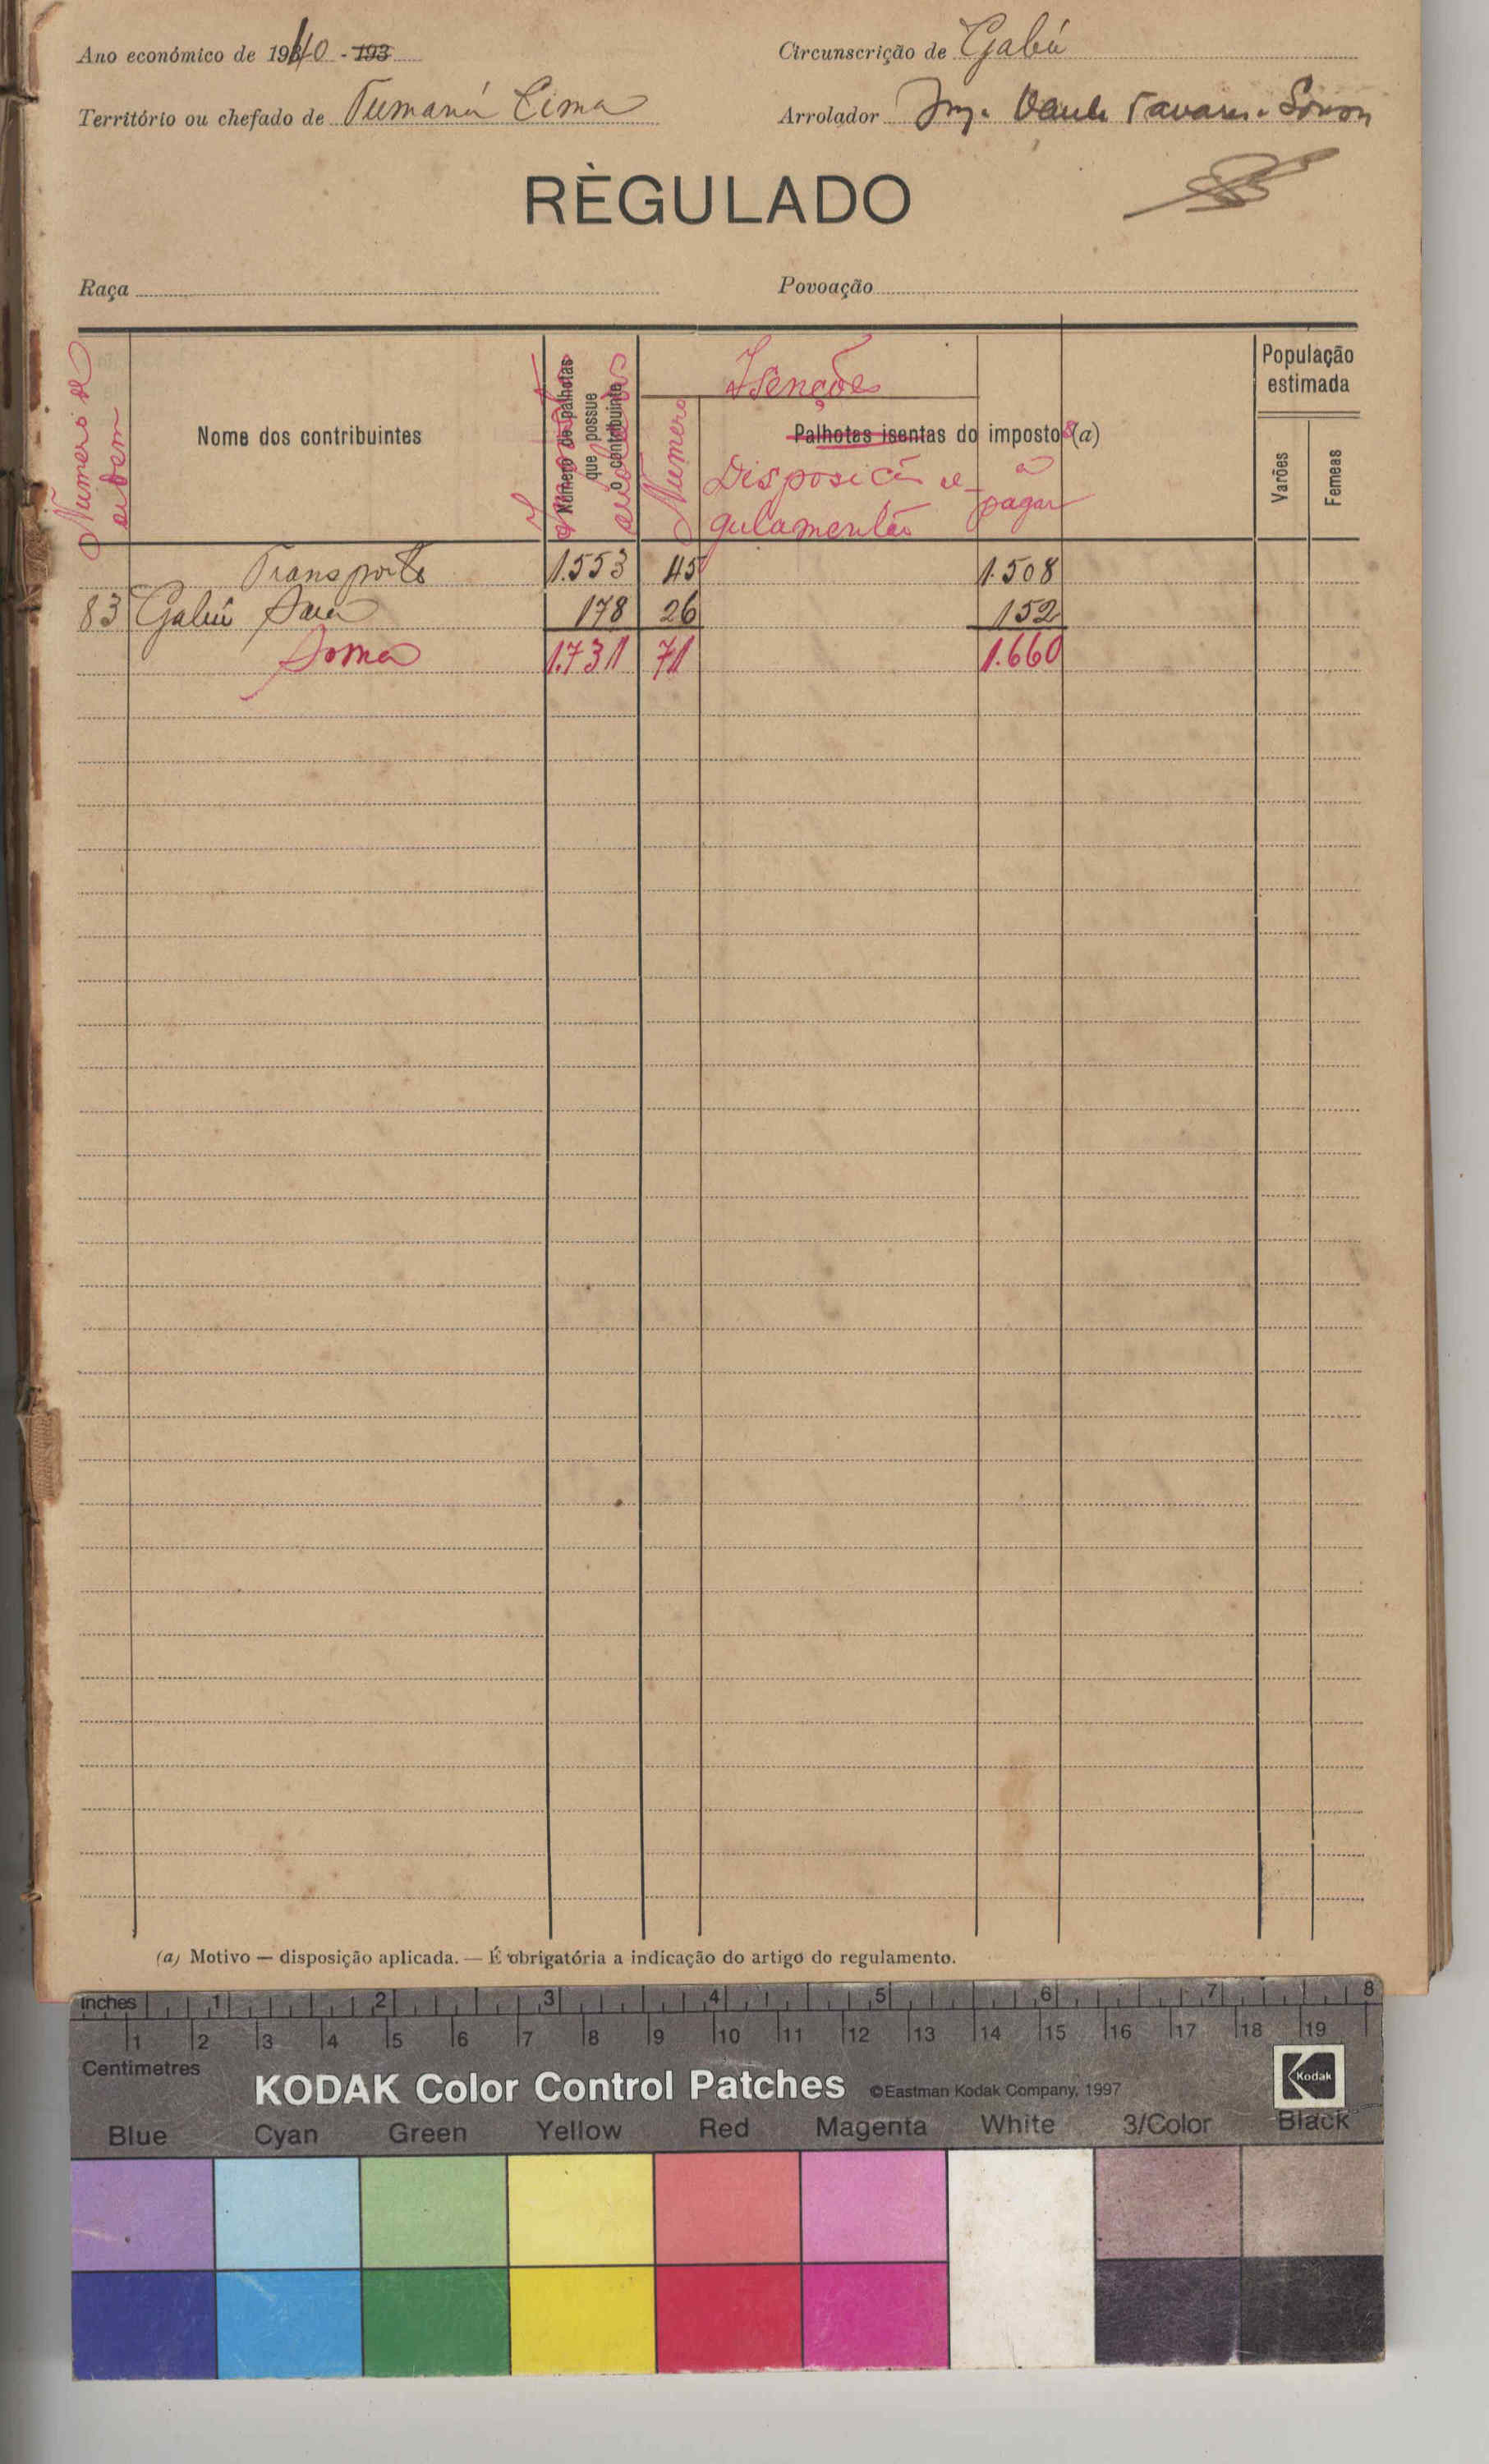 Ano económico de 1940 - 193
Circunscrição de Gabú
Território ou chefado de Tumaná Cima
Arrolador Tavares
RÈGULADO
Raça
Povoação
Numero de ordem
Nome dos contribuintes
Número de palhotas que possue o contribuinte
Isenções
Numero
Palhotas isentas do impostos (a)
Disposição regulamentão
a pagar
População estimada
Varões
Femeas
Transporte 1.553 45 1.508
83 Gabú Sara 178 26 152
Soma 1.731 71 1.660
(a) Motivo — disposição aplicada. — É obrigatória a indicação do artigo do regulamento.
inches 1 2 3 4 5 6 7 8
1 2 3 4 5 6 7 8 9 10 11 12 13 14 15 16 17 18 19
Centimetres
KODAK Color Control Patches ©Eastman Kodak Company, 1997 Kodak
Blue Cyan Green Yellow Red Magenta White 3/Color Black